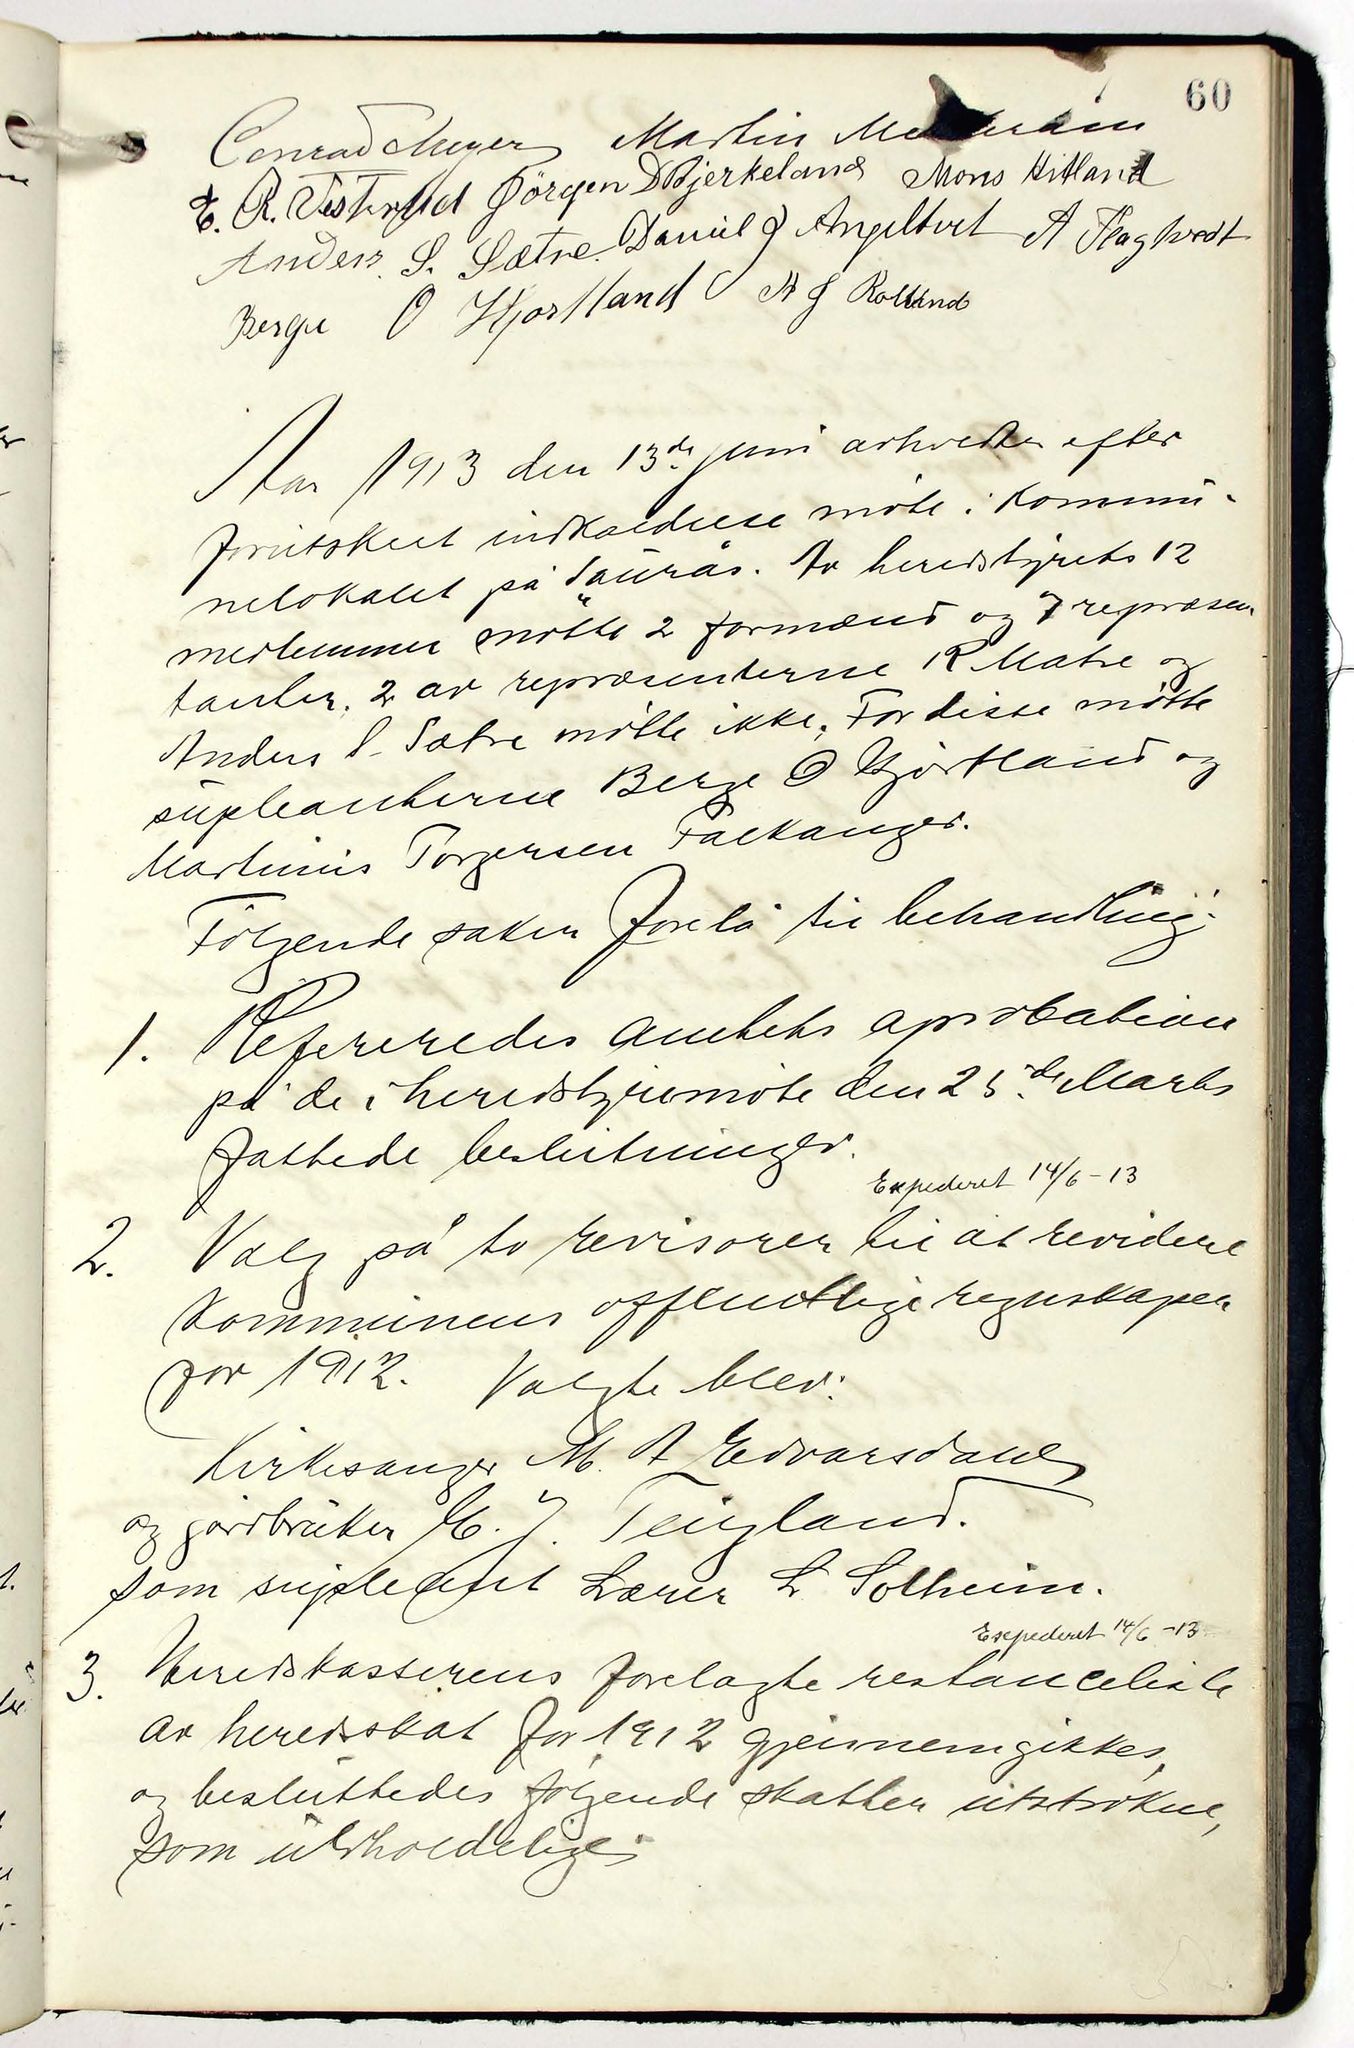 60
Conrad Meyer Martin
E. R. Tistvedt Jörgen D Bjerkeland Mons Hitland
Anders S. Sætre. Daniel J Angeltvet A Flagtvedt
Berge O Hjortland A J Rolland
Aar 1913 den 13de juni avholdtes efter
forutskut indkaldelse möte i Kommu-
nelokalet på Saurås. Av heredstyrets 12
medlemmer mötte 2 formænd og 7 repræsen
tanter. 2 av repræsenterne R Matre og
Anders S. Sætre mötte ikke. For disse mötte
supleanterne Berge O Hjörtland og
Martinus Torgersen Falkanger.
Fölgende saker forelå til behandling:
1. Refereredes amtets aprobation
på de i heredstyremöte den 25de Marts
fattede beslutninger.
Expederet 14/6-13
2. Valg på to revisorer til at revidere
Kommunens offentlige regnskaper
for 1912. Valgte blev:
Kirkesanger M. A Edvardsdahl
og gårdbruker E. J. Teigland.
som supleant Lærer L Solheim.
Expederet 14/6-13
3. Heredskasserens forelagte restanceliste
av heredsskat for 1912 gjennemgikkes,
og besluttedes fölgende skatter utströkne,
som uerholdelige: